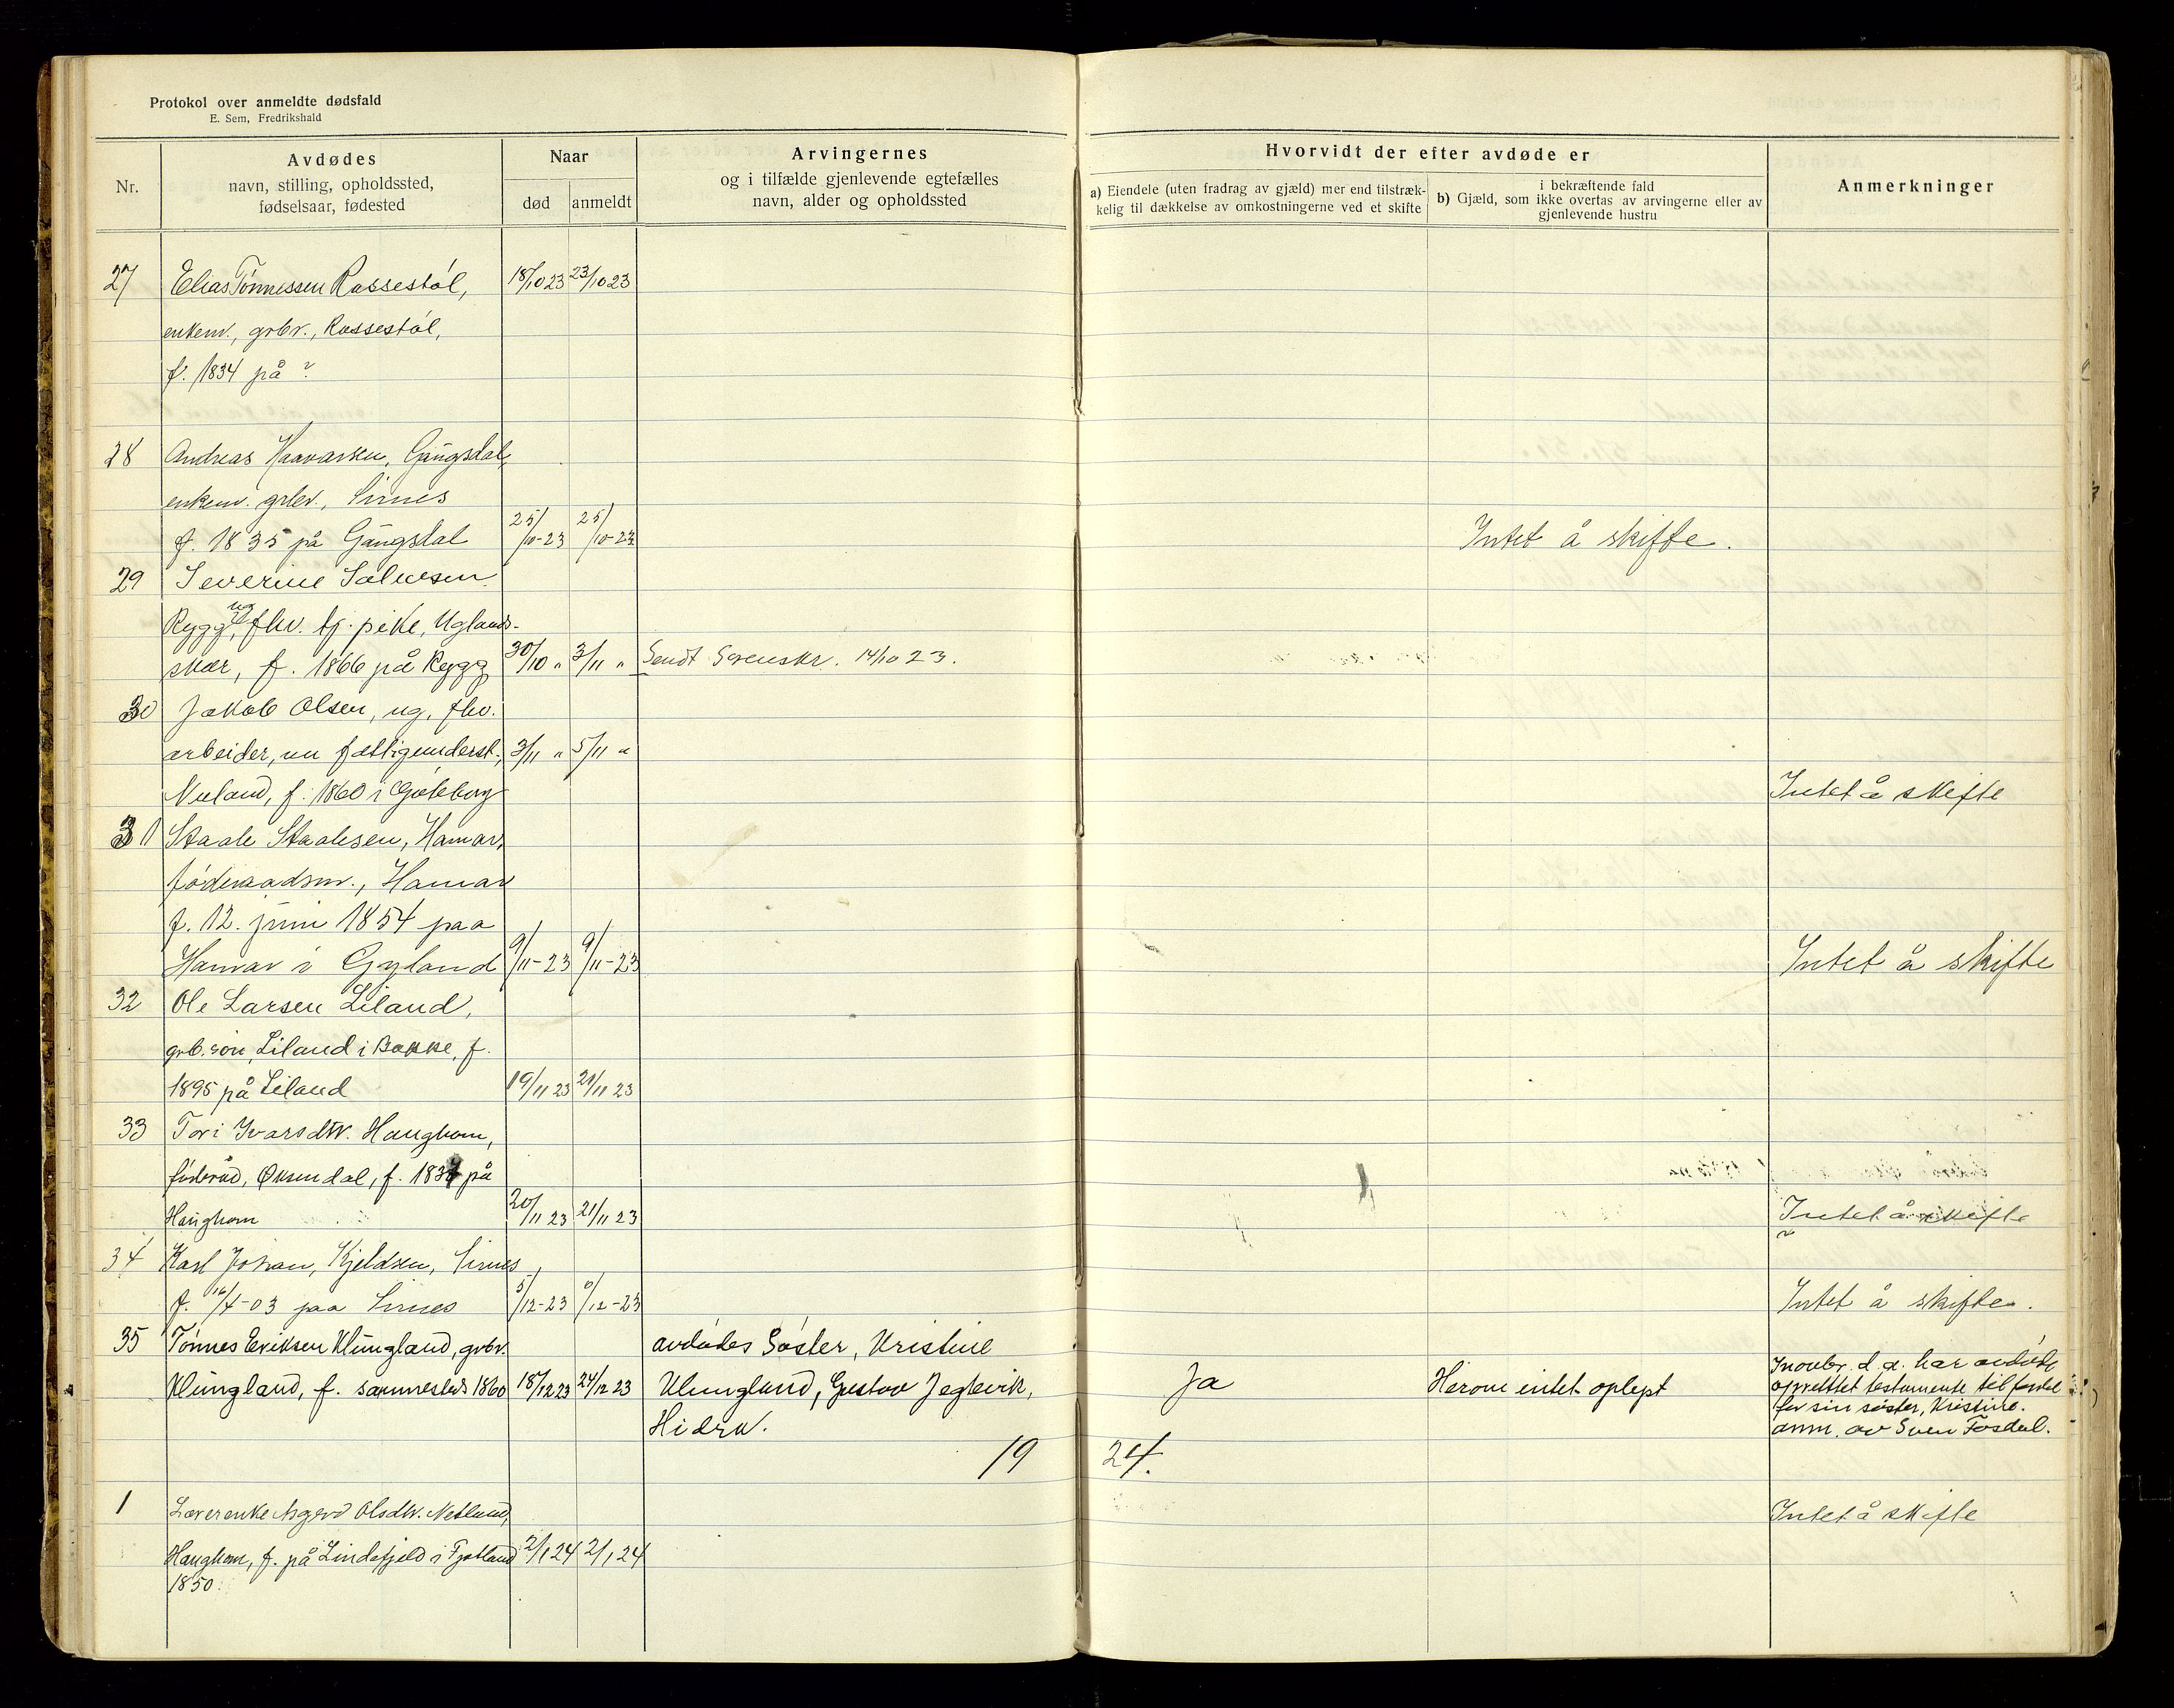 Protokol over anmeldte dødsfald
E. Sem, Fredrikshald
Nr.
Avdødes
navn, stilling, opholdssted,
fødselsaar, fødested
Naar
død
anmeldt
Arvingernes
og i tilfælde gjenlevende egtefælles
navn, alder og opholdssted
Hvorvidt der efter avdøde er
a) Eiendele (uten fradrag av gjæld) mer end tilstræk-
kelig til dækkelse av omkostningerne ved et skifte
i bekræftende fald
b) Gjæld, som ikke overtas av arvingerne eller av
gjenlevende hustru
Anmerkninger
27 Elias Tønnessen Rossestøl, 18/10 23 23/10 23
enkem., grbr., Rossestøl,
f. 1834 på ?
28 Andreas Haavarsen, Gaugstal,
enkem. grbr., Sirnes
f. 1835 på Gaugstal 25/10-23 25/10-23 Intet å skifte.
29 Severine Salvesen
Rygg, ug fhv. tj. pike, Uglands-
skær, f. 1866 på Rygg 30/10 " 3/11 " Sendt Sorenskr. 14/10 23.
30 Jakob Olsen, ug. fhv.
arbeider, nu fattigunderst.; 3/11 " 5/11 "
Nuland, f. 1860 i Göteborg Intet å skifte
31 Staale Staalesen, Hamar,
føderaadsm., Hamar
f. 12. juni 1854 paa
Hamar i Gyland 9/11-23 9/11-23 Intet å skifte
32 Ole Larsen Liland,
grb. søn, Liland i Bakke, f.
1895 på Liland 19/11 23 21/11 23
33 Tori Ivarsdtr. Haughom,
føderåd, Øksendal, f. 1837 på
Haughom 20/11 23 21/11 23 Intet å skifte
34 Karl Johan, Kjeldsen, Sirnes
f. 16/4-03 paa Sirnes 5/12-23 6/12-23 Intet å skifte.
35 Tønnes Eriksen Klungland, grbr.
Klungland, f. sammesteds 1860 18/12 23 24/12 23
avdødes Søster, Kristine
Klungland, Gustav Jegtevik,
Hidra.
Ja
Herom intet oplyst
I novbr. d. a. har avdøde
oprettet testamente til fordel
for sin søster, Kristine.
anm. av Sven Fosdal.
19 24.
1 Lærerenke Asgerd Olsdtr. Netland,
Haughom, f. på Lindefjeld i Fjotland 2/1 24 2/1 24
1850.
Intet å skifte